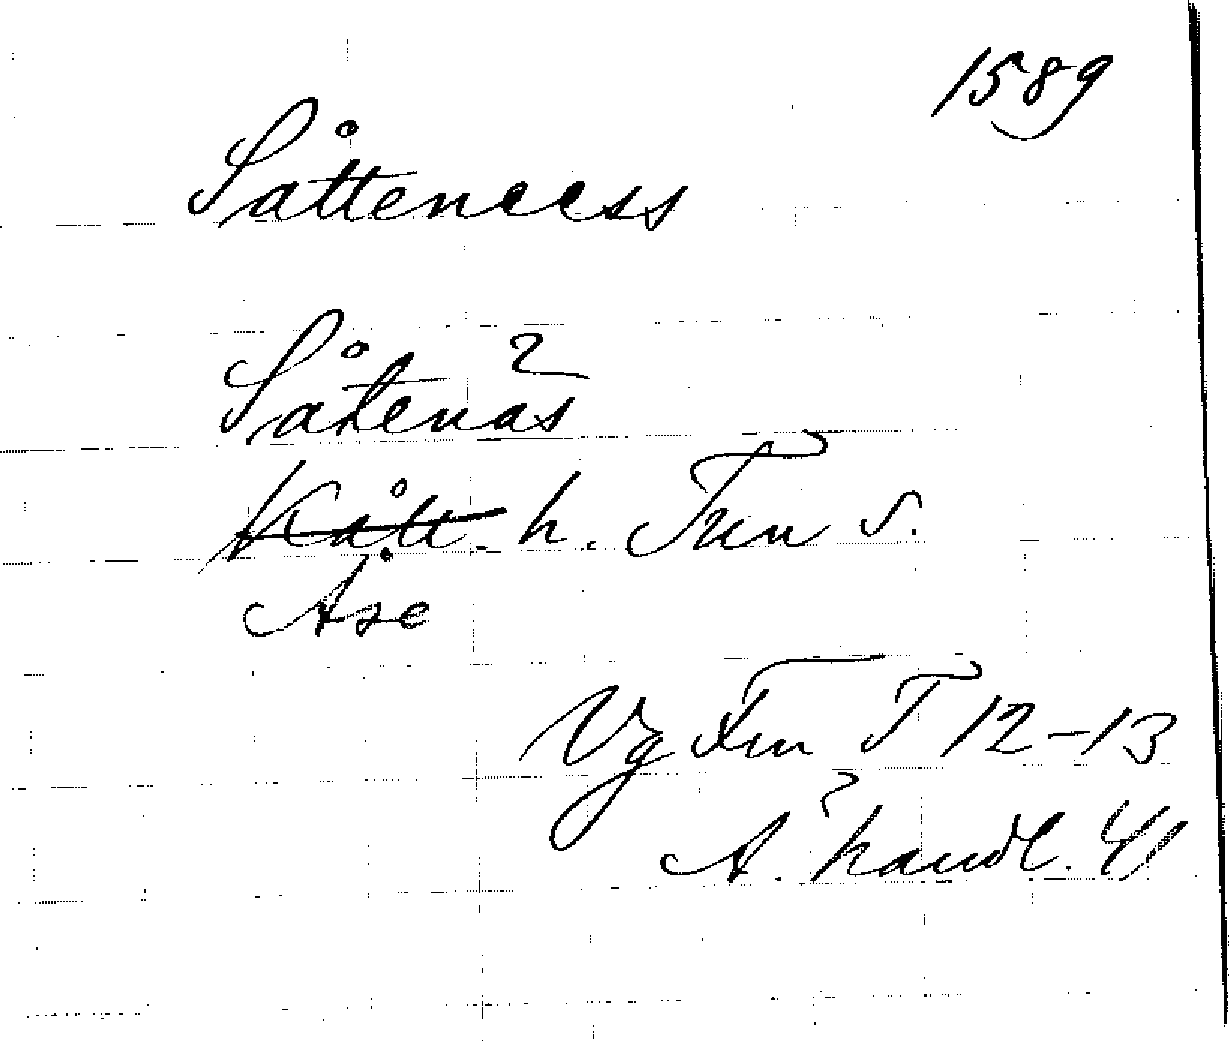 1589
Såtteneess
Såtenäs
Kått h. Tun s.
Åse
Vg Fm T 12-13
A. handl. 41